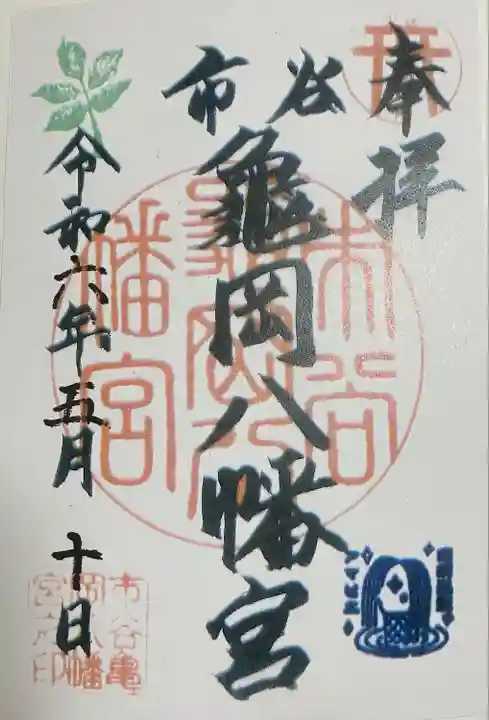 奉拝
市谷
亀岡八幡宮
令和六年五月十日
市谷
亀岡八
幡宮
市谷亀
岡八幡
宮之印